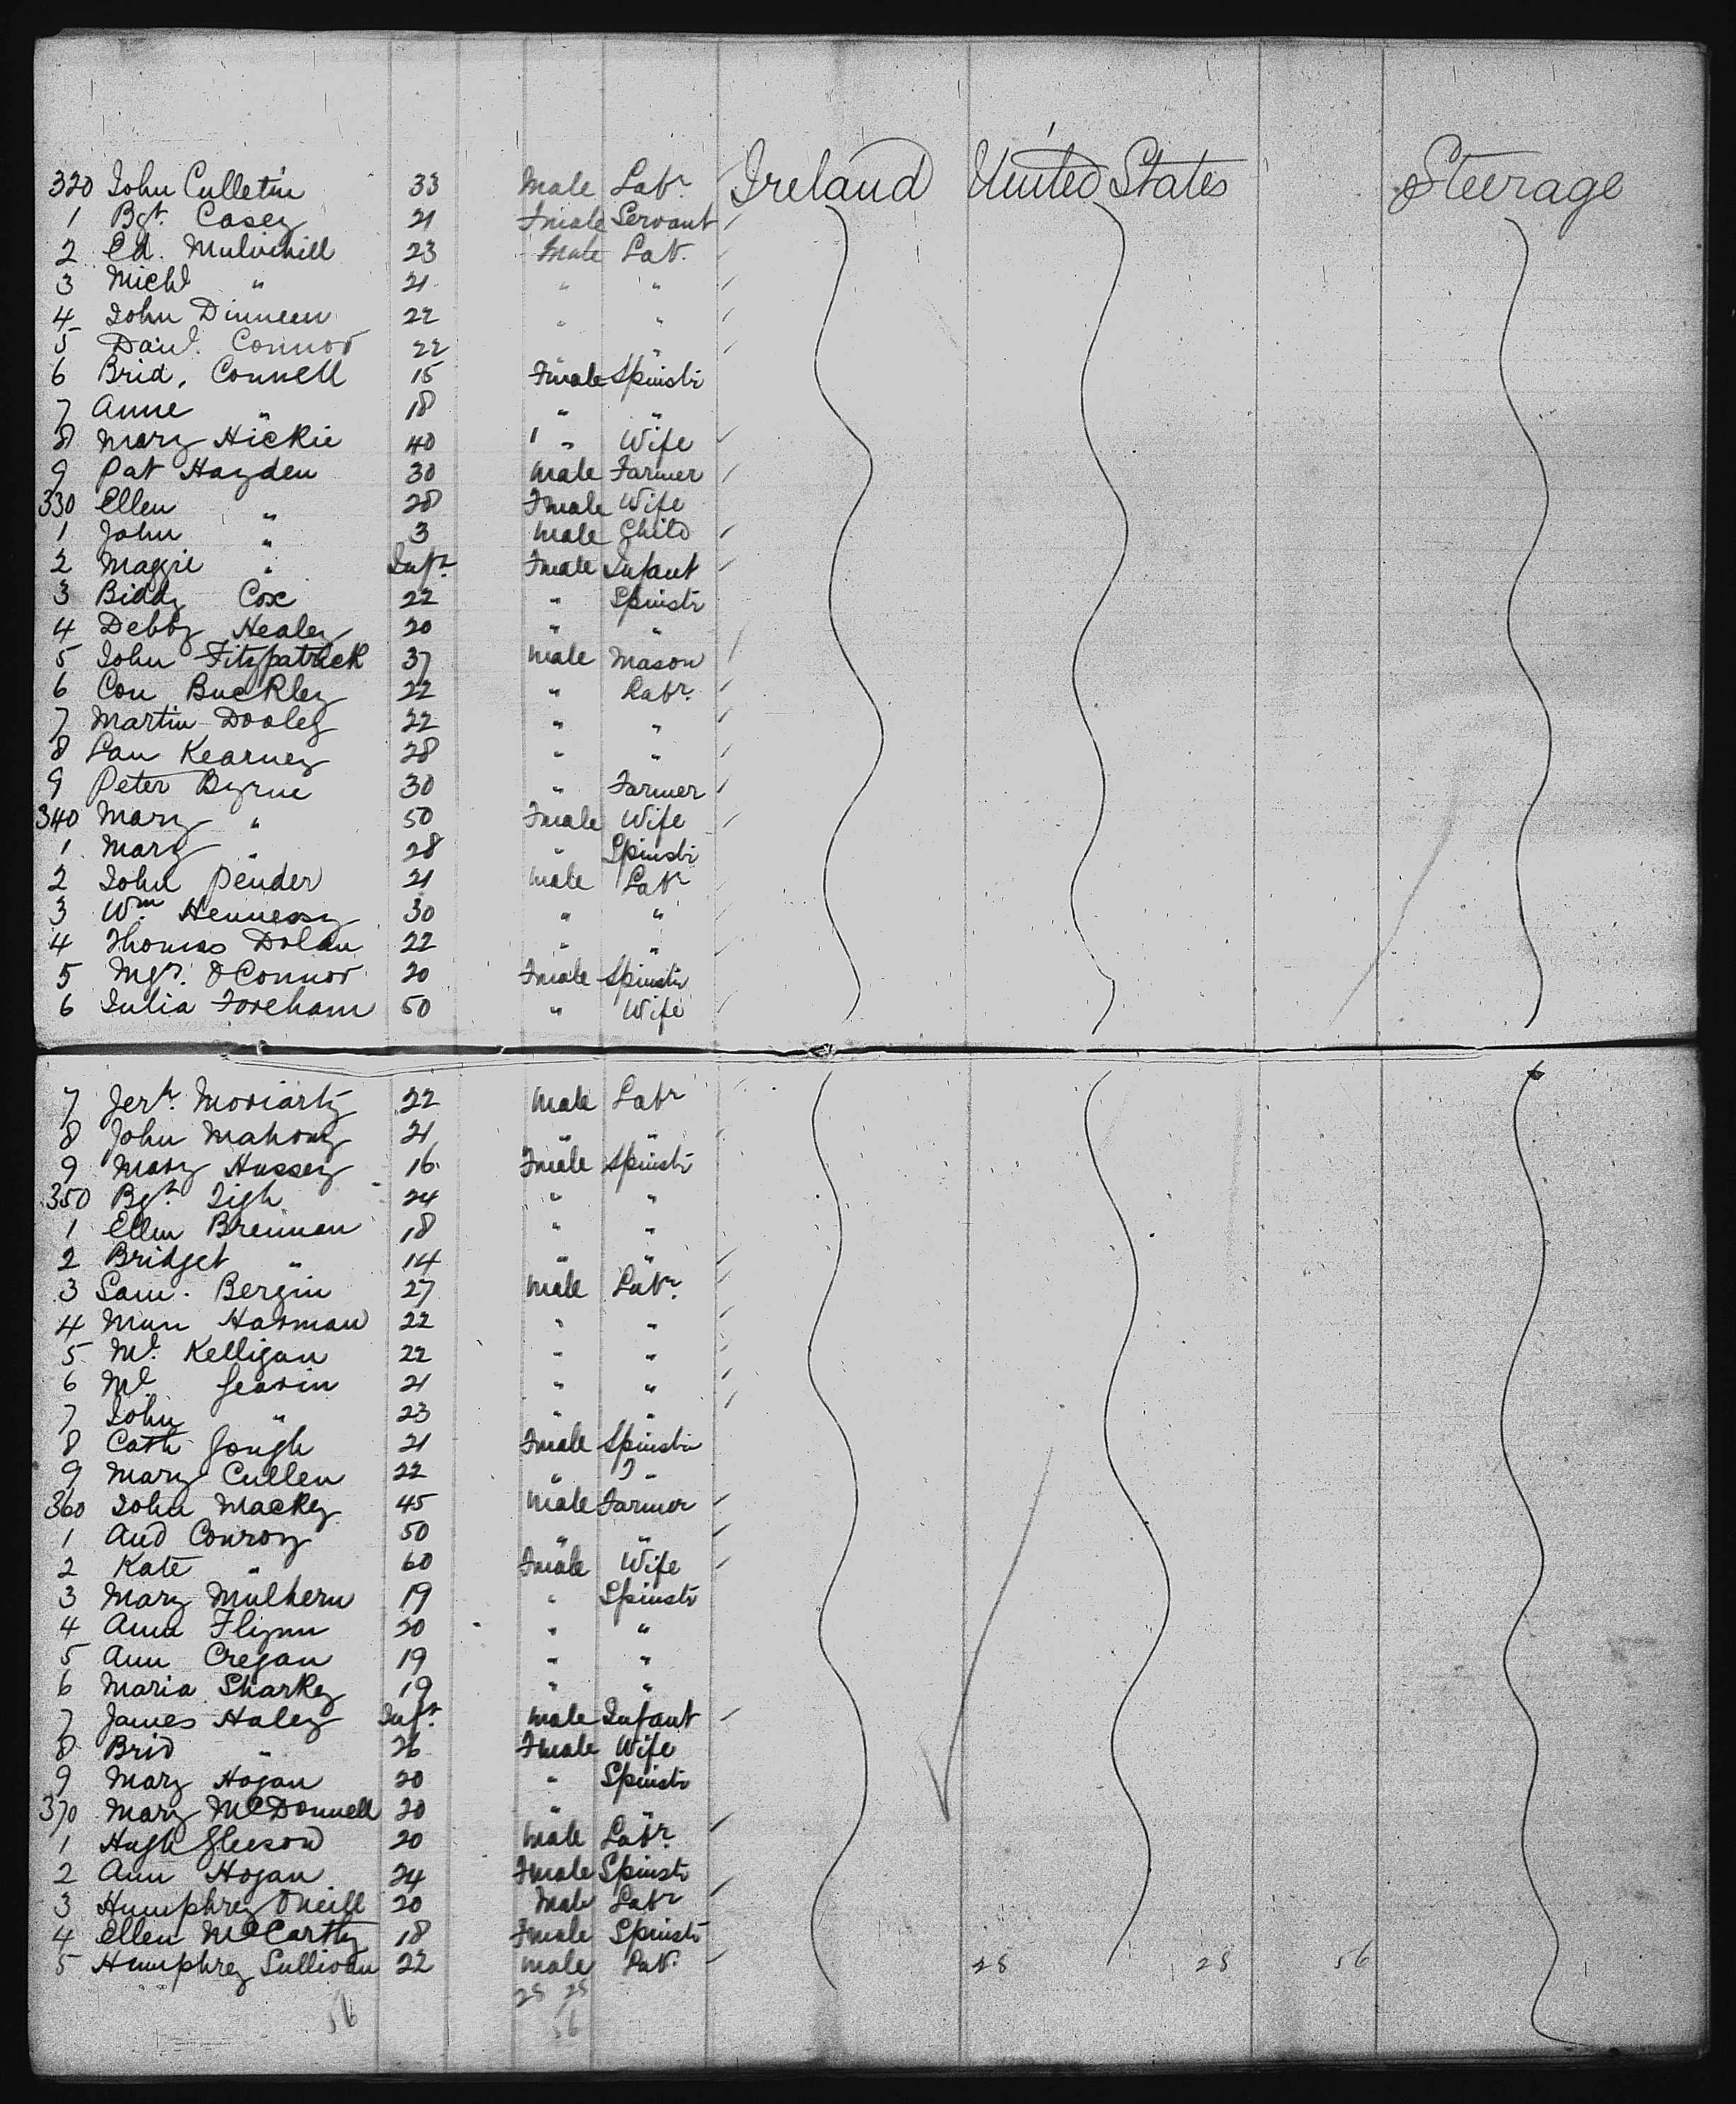 320 John Culletin 33 Male Labr Ireland United States Steerage
1 Bgt. Casey 21 Fmale Servant
2 Ed. Mulvihill 23 Male Labr
3 Michl " 21 " "
4 John Dinneen 22 " "
5 Danl. Connor 22 " "
6 Brid. Connell 15 Fmale Spinstr
7 Anne " 18 " "
8 Mary Hickie 40 " Wife
9 Pat Hayden 30 Male Farmer
330 Ellen " 28 Fmale Wife
1 John " 3 Male Child
2 Maggie " Inft. Fmale Infant
3 Biddy Cox 22 " Spinstr
4 Debby Healey 20 " "
5 John Fitzpatrick 37 Male Mason
6 Con Buckley 22 " Labr.
7 Martin Dooley 22 " "
8 Lau Kearney 28 " "
9 Peter Byrne 30 " Farmer
340 Mary " 50 Fmale Wife
1 Mary " 28 " Spinstr
2 John Pender 21 Male Labr
3 Wm Hennessy 30 " "
4 Thomas Dolan 22 " "
5 Mgt. OConnor 20 Fmale Spinstr
6 Julia Foreham 50 " Wife
7 Jerh. Moriarty 22 Male Labr
8 John Mahony 21 " "
9 Mary Hussey 16 Fmale Spinstr
350 Bgt. Tigh 24 " "
1 Ellen Brennan 18 " "
2 Bridget " 14 " "
3 Sam. Bergin 27 Male Labr.
4 Harman 22 " "
5 Ml. Kelligan 22 " "
6 Ml. Gearin 21 " "
7 John " 23 " "
8 Cath Gough 21 Fmale Spinstr
9 Mary Cullen 22 " "
360 John Mackey 45 Male Farmer
1 And Conroy 50 " "
2 Kate " 60 Fmale Wife
3 Mary Mulhern 19 " Spinstr
4 Anna Flynn 20 " "
5 Ann Cregan 19 " "
6 Maria Sharkey 19 " "
7 James Haley Inft. Male Infant
8 Brid " 26 Fmale Wife
9 Mary Hogan 20 " Spinstr
370 Mary McDonnell 20 " "
1 Hugh Gleeson 20 Male Labr.
2 Ann Hogan 24 Fmale Spinstr
3 Humphrey ONeill 20 Male Labr
4 Ellen McCarthy 18 Fmale Spinstr
5 Humphrey Sullivan 22 Male Labr. 28 28 56
28 28
56 56